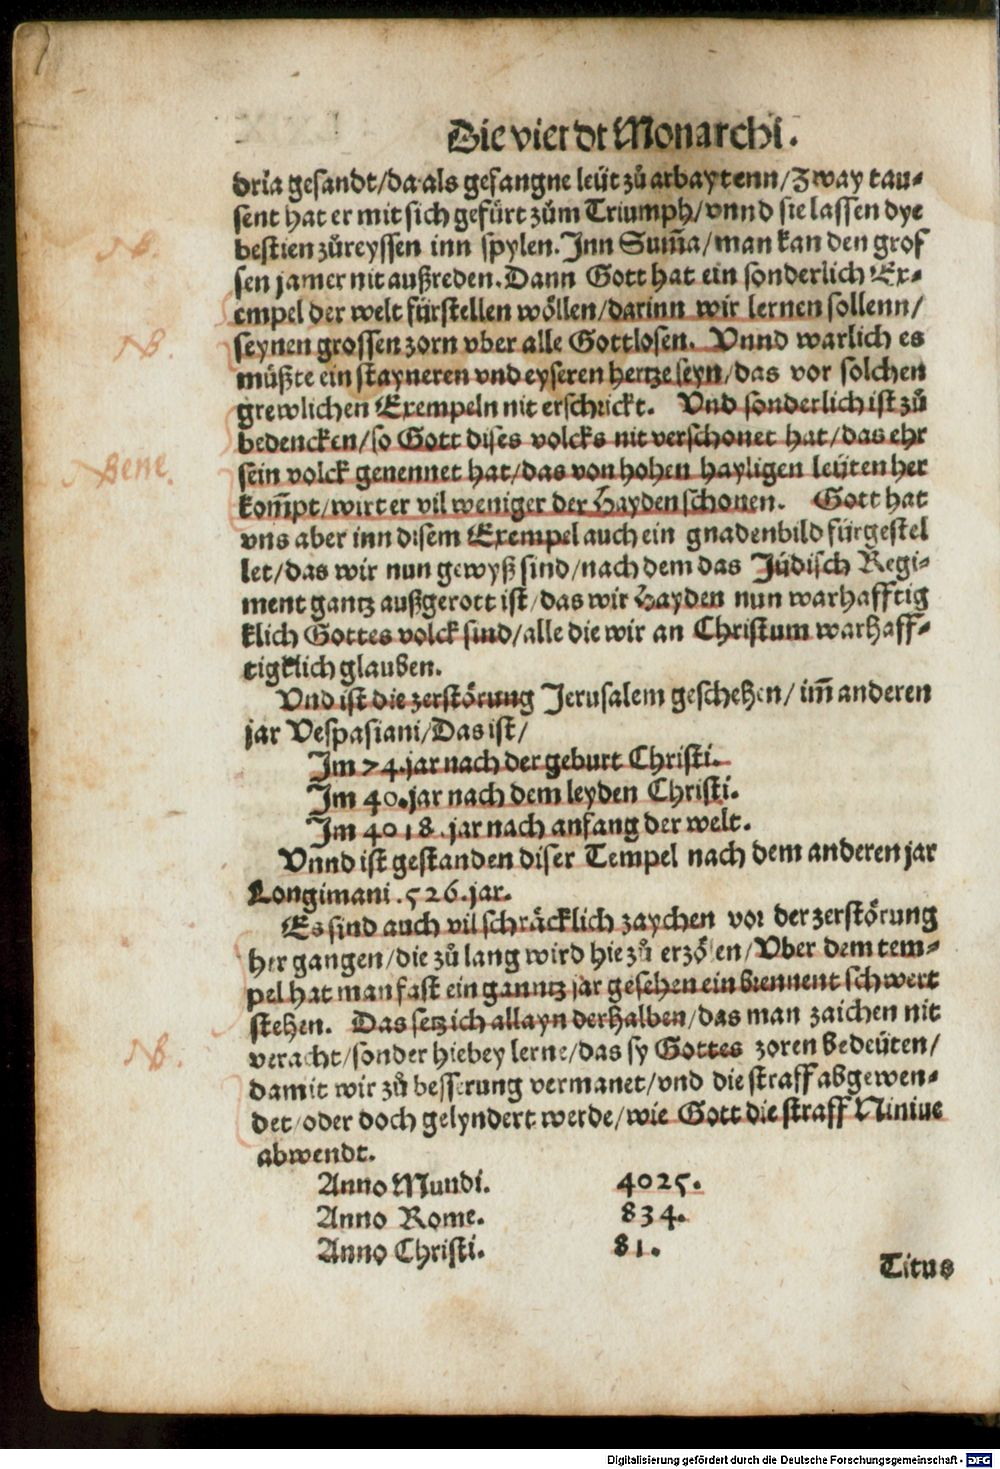 Die vierdt Monarchi.
dria gesandt/da als gefangne leüt zů arbaytenn/Zway tau-
sent hat er mit sich gefürt zům Triumph/vnnd sie lassen dye
bestien zůreyssen inn spylen. Inn Sum̃a/man kan den gros
sen jamer nit außreden. Dann Gott hat ein sonderlich Ex-
empel der welt fürstellen wöllen/darinn wir lernen sollenn/
seynen grossen zorn vber alle Gottlosen. Vnnd warlich es
müßte ein stayneren vnd eyseren hertze seyn/das vor solchen
grewlichen Exempeln nit erschrickt. Vnd sonderlich ist zů
bedencken/so Gott dises volcks nit verschonet hat/das ehr
sein volck genennet hat/das von hohen hayligen leüten her
kom̃pt/wirt er vil weniger der Hayden schonen. Gott hat
vns aber inn disem Exempel auch ein gnadenbild fürgestel
let/das wir nun gewyß sind/nach dem das Jüdisch Regi-
ment gantz außgerott ist/das wir Hayden nun warhafftig
klich Gottes volck sind/alle die wir an Christum warhaff-
tigklich glauben.
Vnd ist die zerstörung Jerusalem geschehen/im̃ anderen
jar Vespasiani/Das ist/
Im 74. jar nach der geburt Christi.
Im 40. jar nach dem leyden Christi.
Im 4018. jar nach anfang der welt.
Vnnd ist gestanden diser Tempel nach dem anderen jar
Longimani. 526. jar.
Es sind auch vil schräcklich zaychen vor der zerstörung
her gangen/die zů lang wird hie zů erzölen/Vber dem tem-
pel hat man fast ein ganntz jar gesehen ein brennent schwert
stehen. Das setz ich allayn derhalben/das man zaichen nit
veracht/sonder hiebey lerne/das sy Gottes zoren bedeüten/
damit wir zů besserung vermanet/vnd die straff abgewen-
det/oder doch gelyndert werde/wie Gott die straff Niniue
abwendt.
Anno Mundi. 4025.
Anno Rome. 834.
Anno Christi. 81.
Titus
NB.
NB.
Bene.
NB.
Digitalisierung gefördert durch die Deutsche Forschungsgemeinschaft - DFG